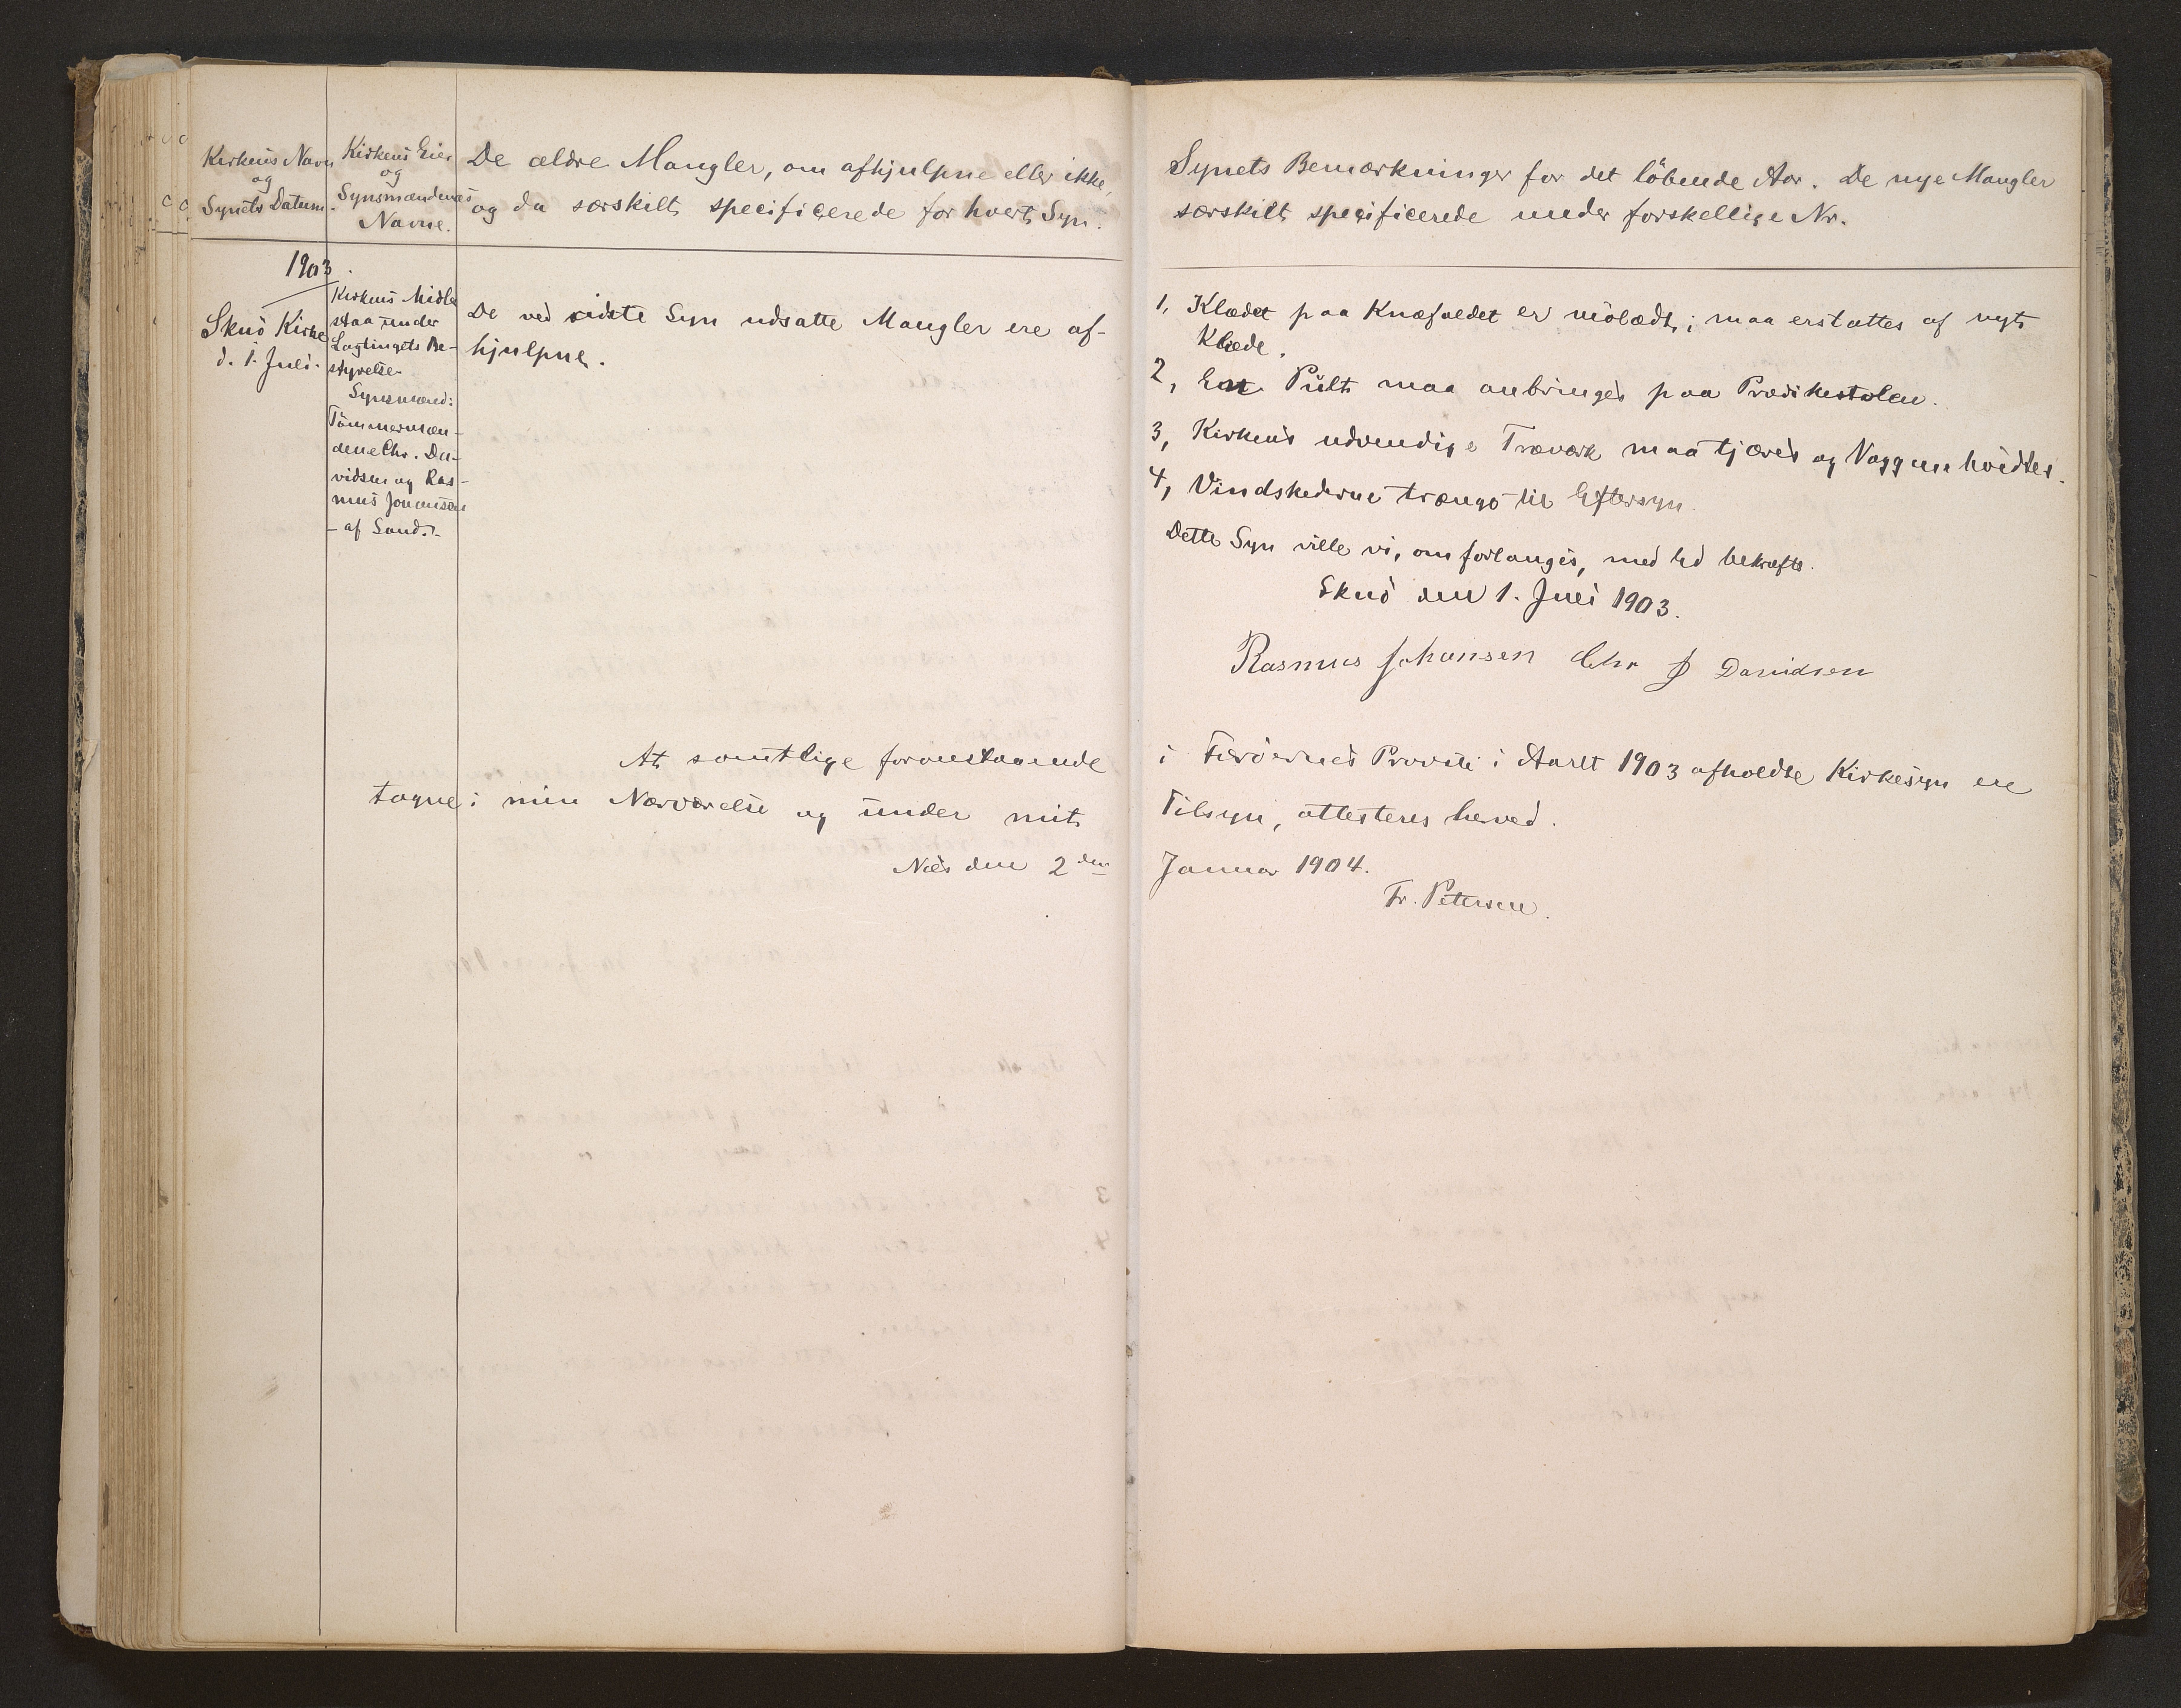 Kirkens Navn
og
Synets Datum.
Kirkens Eier
og
Synsmændenes
Navne.
De ældre Mangler, om afhjulpne eller ikke,
og da særskilt specificerede for hvert Syn.
1903.
Skuö Kirke
d. 1. Juli.
Kirkens Midler
staa under
Lagtingets Be-
styrelse.
Synsmænd:
Tömmermæn-
dene Chr. Da-
vidsen og Ras-
mus Johansen
- af Sand. -
De ved sidste Syn udsatte Mangler ere af-
hjulpne.
At samtlige foranstaaende
tagne i min Nærværelse og under mit
Næs den 2den
Synets Bemærkninger for det löbende Aar. De nye Mangler
særskilt specificerede under forskellige Nr.
1, Klædet paa Knæfaldet er mölædt; maa erstattes af nyt
Klæde.
2, En Pult maa anbringes paa Prædikestolen.
3, Kirkens udvendige Træværk maa tjæres og Væggene hvidtes.
4, Vindskederne trænge til Eftersyn.
Dette Syn ville vi, om forlanges, med Ed bekræfte.
Skuö den 1. Juli 1903.
Rasmus Johansen Chr J Davidsen
i Færöernes Provsti i Aaret 1903 afholdte Kirkesyn ere
Tilsyn, attesteres herved.
Januar 1904.
Fr. Petersen.